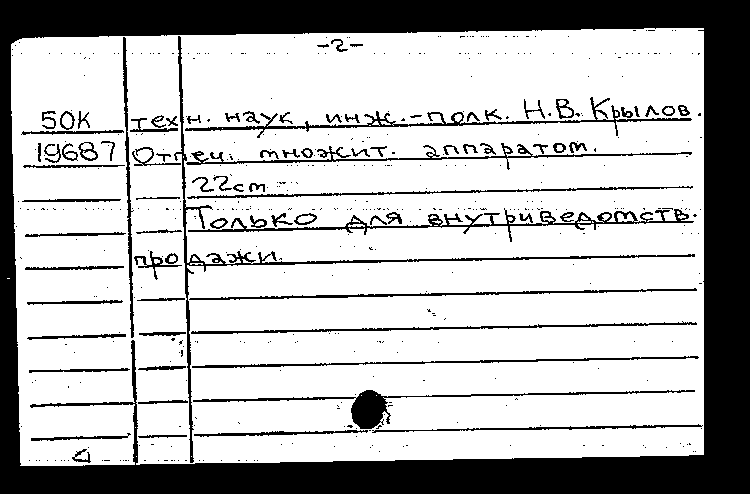 -2-
50К техн. наук, инж.-полк. Н.В. Крылов.
19687 Отпеч. множит. аппаратом.
22cm
Только для внутриведомств.
продажи.